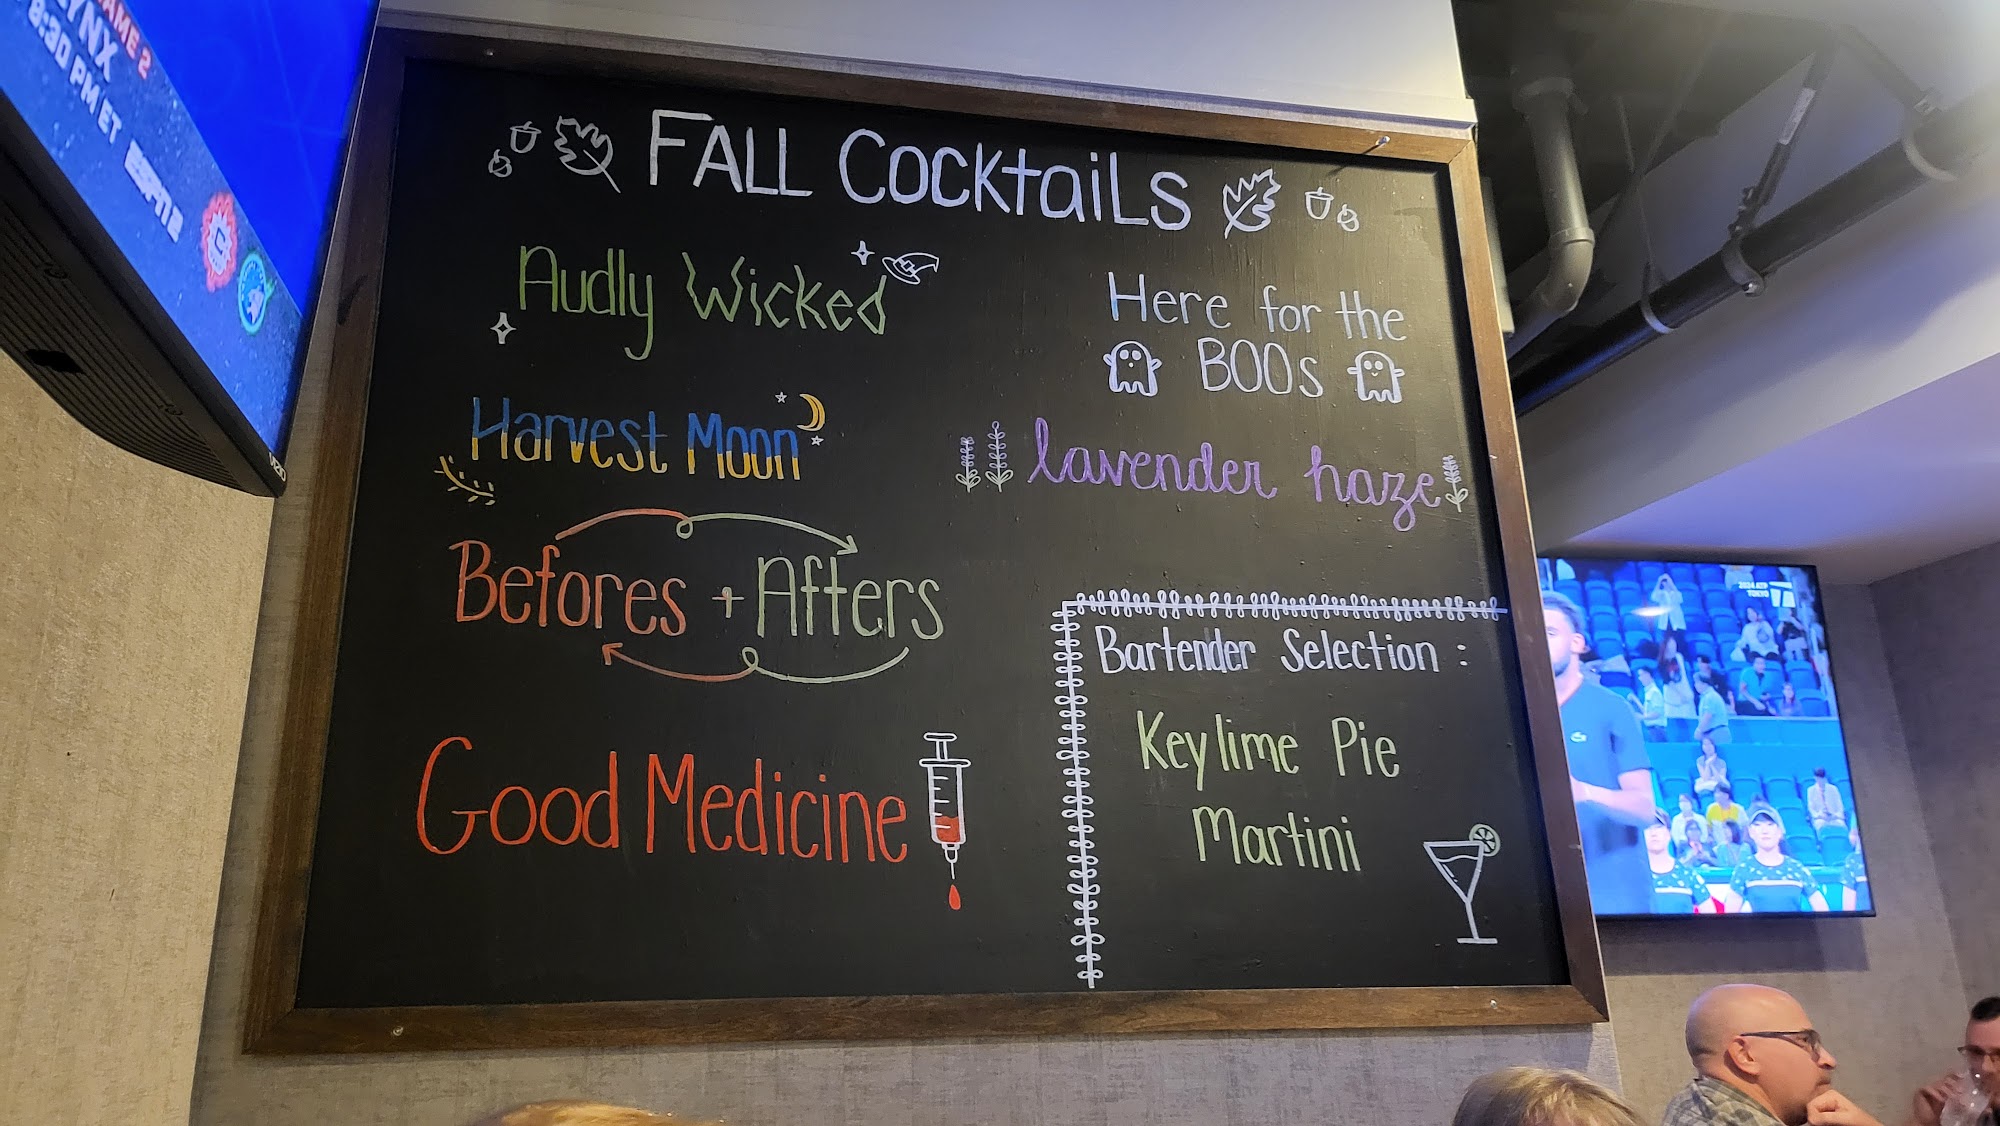 GAME 2
LYNX
8:30 PM ET
ESPN2
VIZIO
FALL Cocktails
Audly Wicked
Here for the
BOOs
Harvest Moon
lavender haze
Befores + Afters
Bartender Selection :
Key lime Pie
Martini
Good Medicine
2024 ATP
TOKYO